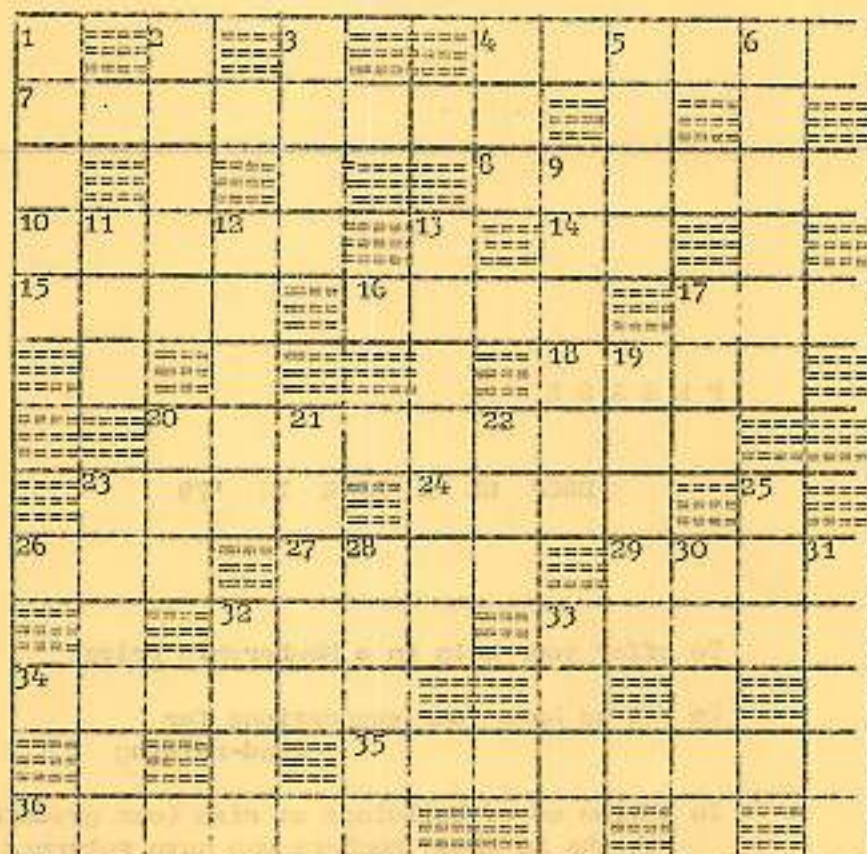 1 2 3 4 5 6
7
8 9
10 11 12 13 14
15 16 17
18 19
20 21 22
23 24 25
26 27 28 29 30 31
32 33
34
35
36